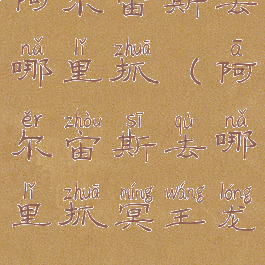 阿尔宙斯去
nǎ lǐ zhuā ā
哪里抓（阿
ěr zhòu sī qù nǎ
尔宙斯去哪
lǐ zhuā míng wáng lóng
里抓冥王龙